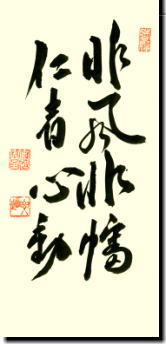 非風非幡
仁者心動